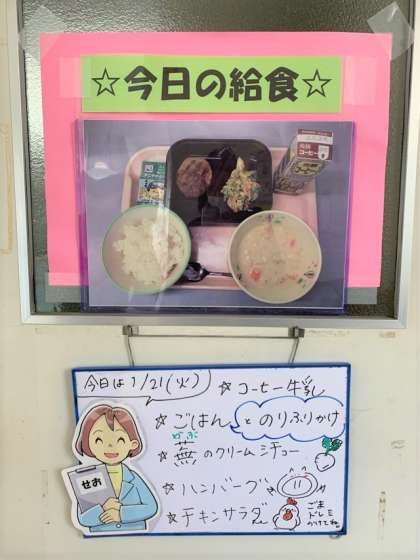 ☆今日の給食☆
コーヒー
今日は1/21(火)
☆コーヒー牛乳
☆ごはんとのりふりかけ
かぶ
☆蕪のクリームシチュー
☆ハンバーグ
☆チキンサラダ
ごま
ドレミ
かけてね
せお